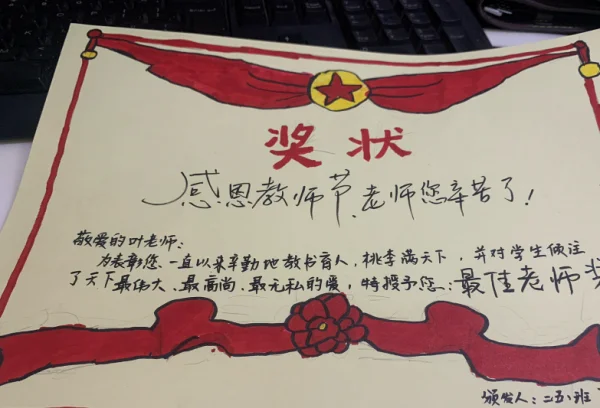 奖状
感恩教师节,老师您辛苦了!
敬爱的叶老师:
为表彰您一直以来辛勤地教书育人,桃李满天下,并对学生倾注
了天下最伟大、最高尚、最无私的爱,特授予您:最佳老师奖
颁发人:二五班